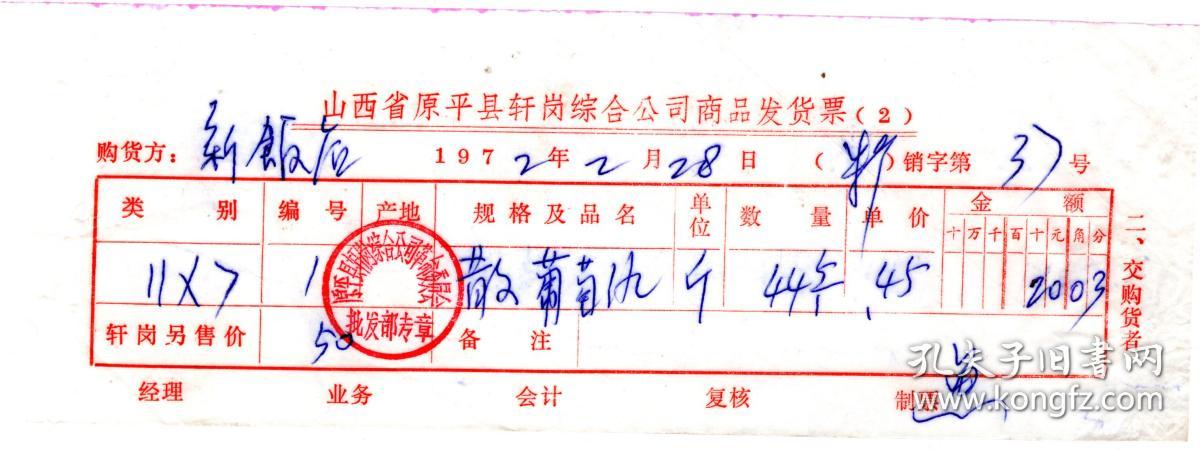 山西省原平县轩岗综合公司商品发货票(2)
购货方：新飯店 1972年2月28日 ( ) 销字第 37 号
类别 编号 产地 规格及品名 单位 数量 单价 金额
十万千百十元角分
11X7 1 散葡萄 斤 44 .45 2003
批发部专章
轩岗另售价 50 备注
二、交购货者
经理 业务 会计 复核 制票
孔夫子旧书网
www.kongfz.com